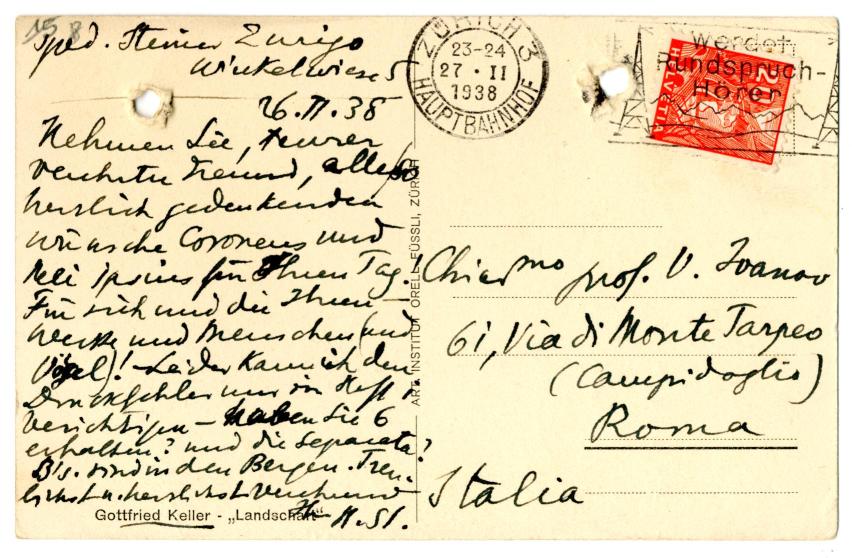 158
Sped. Steiner Zurigo
Winkelwiese 5
26.II.38
Nehmen Sie, teurer
verehrter Freund, alle
herzlich gedenkenden
Wünsche Coronens und
mei ipsius für Ihren Tag!
Für sich und die Ihren –
Werke und Menschen (und
Vögel)! – Leider kann ich den
Druckfehler nur in Heft
berichtigen – haben Sie 6
erhalten? und die Separata?
B's. sind in den Bergen. Treu-
lichst u. herzlichst verehrend
H. St.
Gottfried Keller - „Landschaft"
ART. INSTITUT ORELL FÜSSLI, ZÜRICH
ZÜRICH 3
23-24
27 · II
1938
HAUPTBAHNHOF
Werdet
Rundspruch-
Hörer
HELVETIA
20
Chiarmo prof. V. Ivanov
61, Via di Monte Tarpeo
(Campidoglio)
Roma
Italia